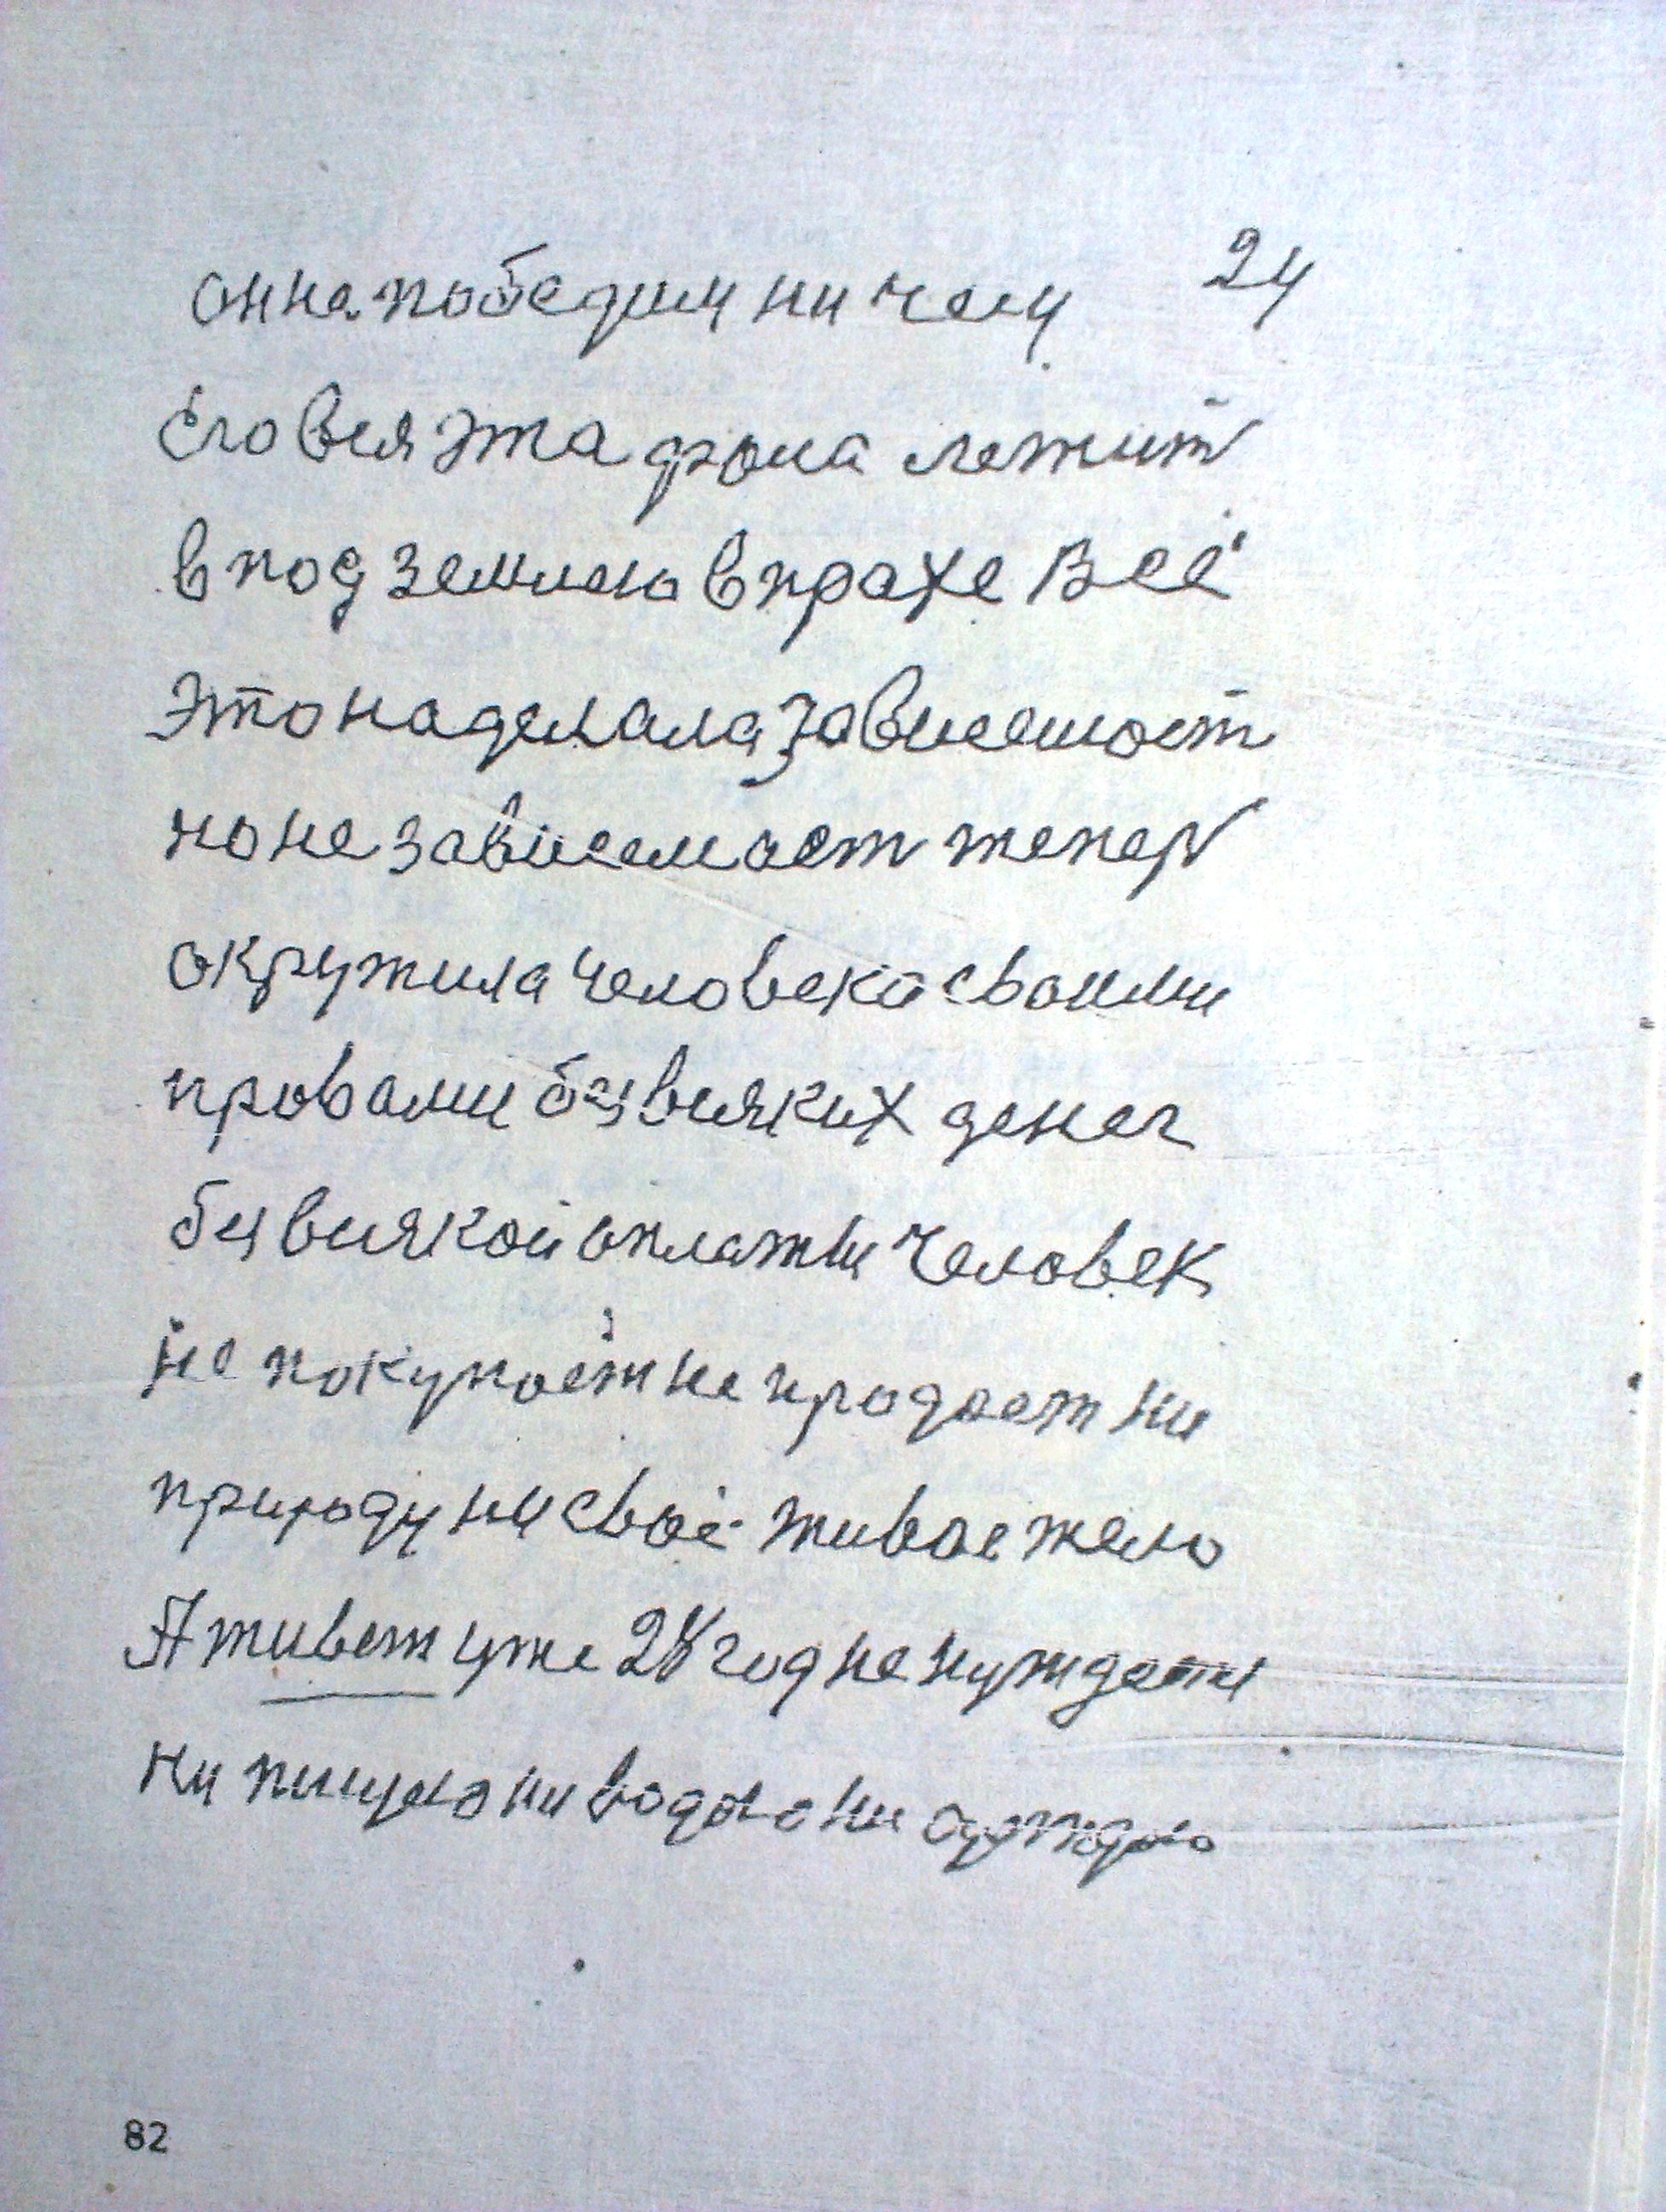 24
он не победим ни чем
Его вся эта фона лежит
в под землею в прахе Всё
это наделала зависемост
но не зависемост тепер
окружила человека своими
провами без всяких денег
без всякой оплаты человек
не покупает не продает ни
природу ни своё живое тело
Я живет уже 24 год не нуждаеты
ни пищею ни водою ни одеждою
82